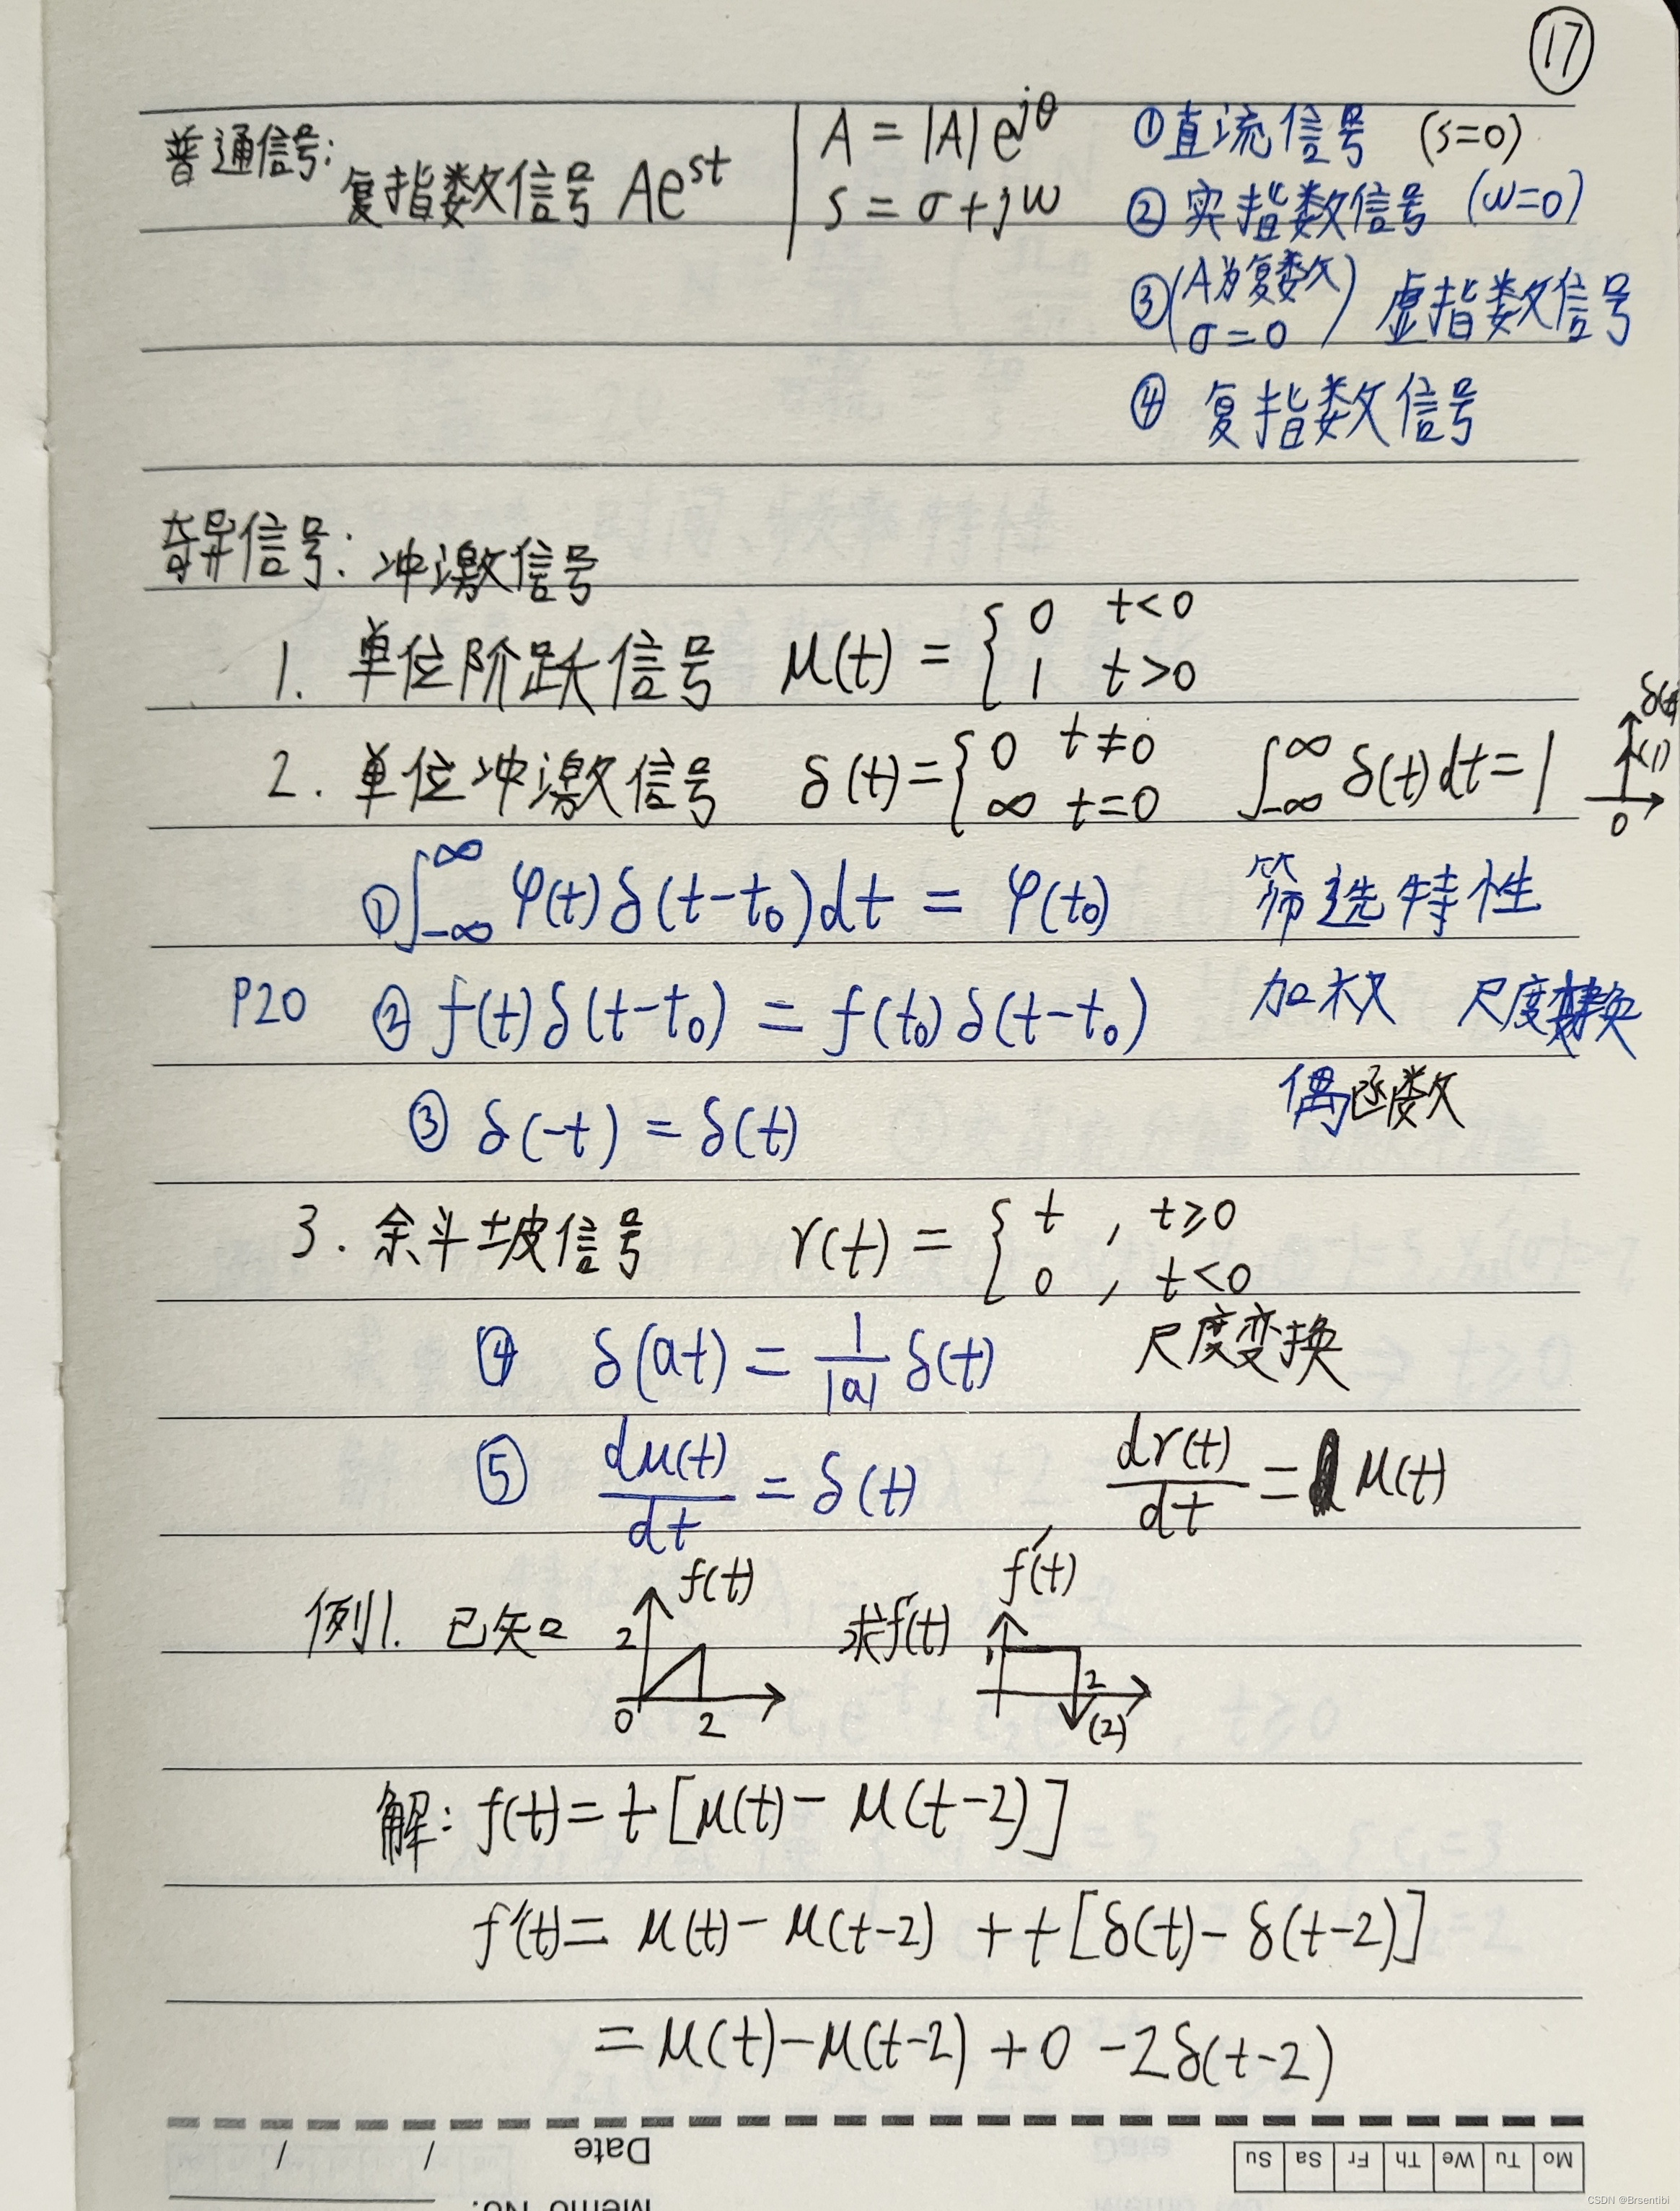 17
普通信号: 复指数信号 Ae^{st} | A = |A|e^{jθ}
s = σ+jω
①直流信号 (s=0)
② 实指数信号 (ω=0)
③(A为复数 σ=0) 虚指数信号
④ 复指数信号
奇异信号: 冲激信号
1. 单位阶跃信号 μ(t) = { 0 t<0
1 t>0
2. 单位冲激信号 δ(t)= { 0 t≠0
∞ t=0
∫_{-∞}^{∞} δ(t)dt=1
δ(t)
(1)
0
① ∫_{-∞}^{∞} φ(t)δ(t-t₀)dt = φ(t₀) 筛选特性
P20 ② f(t)δ(t-t₀) = f(t₀)δ(t-t₀) 加权 尺度变换
③ δ(-t) = δ(t) 偶函数
3. 余斗坡信号 r(t) = { t , t≥0
0 , t<0
④ δ(at) = 1/|a| δ(t) 尺度变换
⑤ dμ(t)/dt = δ(t) , dr(t)/dt = μ(t)
例1. 已知 f(t) 2 0 2 求f'(t) f'(t) 1 2 (2)
解: f(t)= t[μ(t)- μ(t-2)]
f'(t)= μ(t)- μ(t-2) + t[δ(t)- δ(t-2)]
= μ(t)-μ(t-2) +0 -2δ(t-2)
Mo Tu We Th Fr Sa Su
Date / /
Memo No.
CSDN @Brsentibi